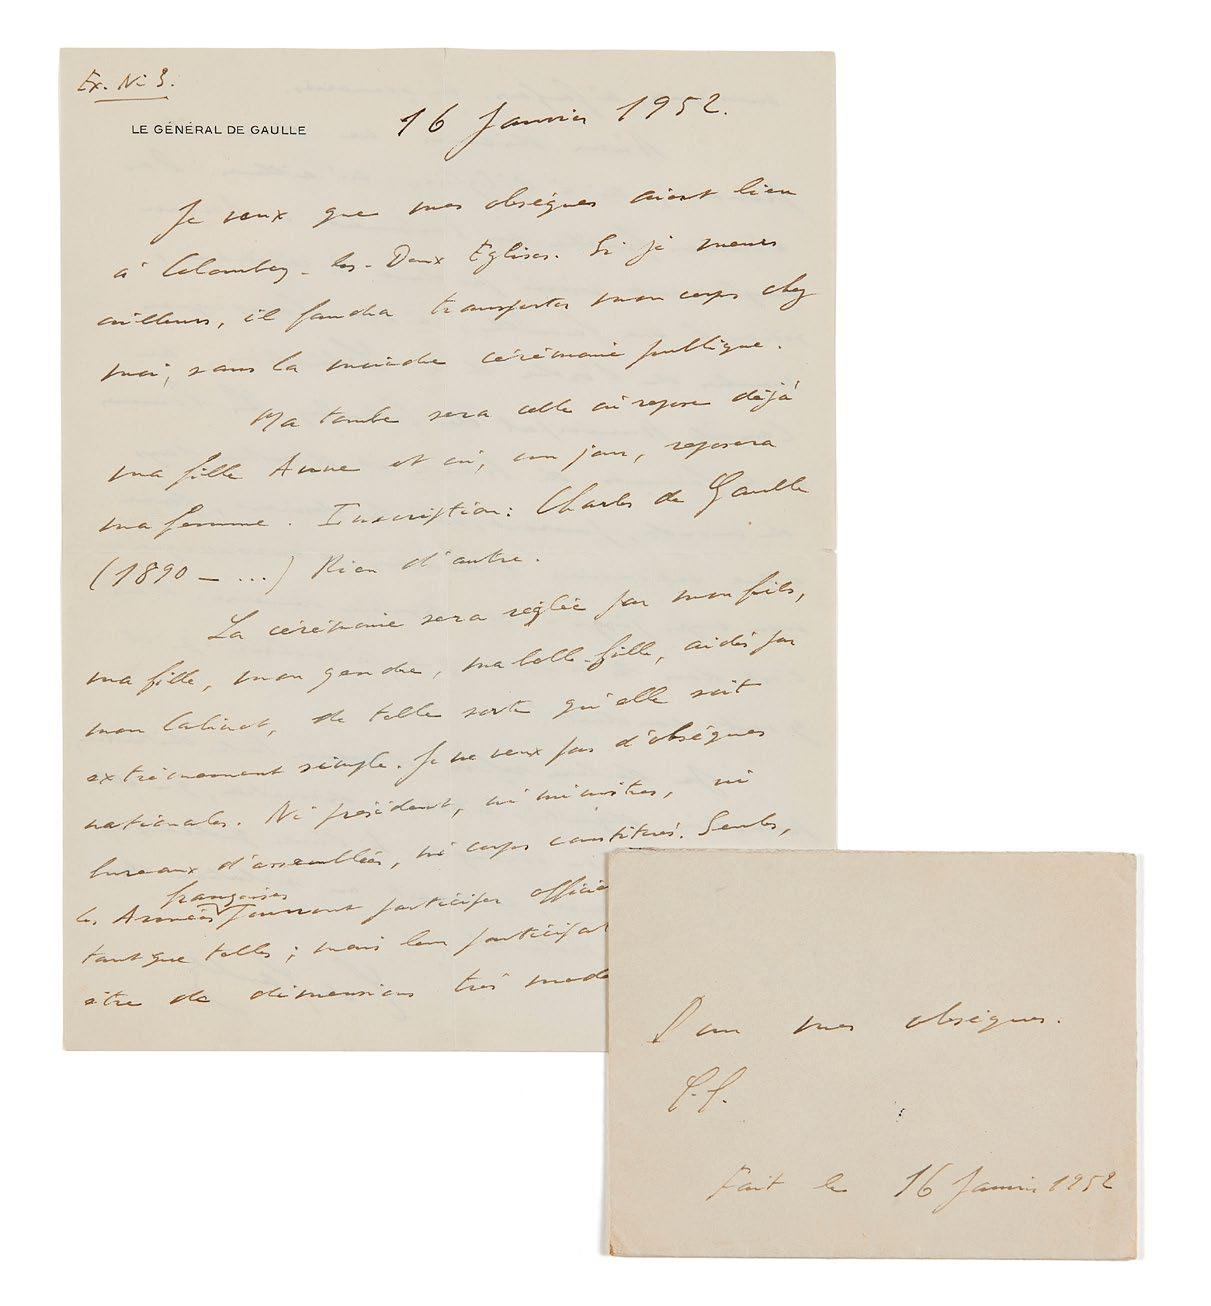 Ex. No 3.
LE GÉNÉRAL DE GAULLE
16 Janvier 1952.
Je veux que mes obsèques aient lieu
à Colombey-les-Deux Eglises. Si je meurs
ailleurs, il faudra transporter mon corps chez
moi, sans la moindre cérémonie publique.
Ma tombe sera celle où repose déjà
ma fille Anne et où, un jour, reposera
ma femme. Inscription: Charles de Gaulle
(1890 - ...) Rien d'autre.
La cérémonie sera réglée par mon fils,
ma fille, mon gendre, ma belle-fille, aidés par
mon Cabinet, de telle sorte qu'elle soit
extrêmement simple. Je ne veux pas d'obsèques
nationales. Ni président, ni ministres, ni
bureaux d'assemblées, ni corps constitués. Seules,
les Armées françaises pourront participer offici
tant que telles; mais leur participat
être de dimensions très mode
Pour mes obsèques.
C.G.
Fait le 16 Janvier 1952